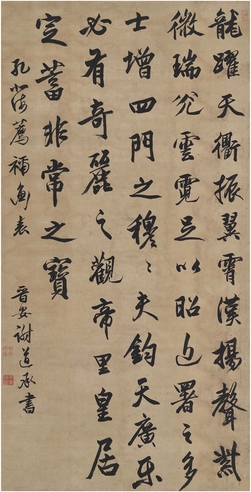 龍躍天衢振翼霄漢揚聲紫
微瑞光雲霓足以昭近署之多
士增四門之穆〻夫鈞天廣樂
必有奇麗之觀帝里皇居
定蓄非常之寶
孔北海薦禰衡表
晋安謝道承書